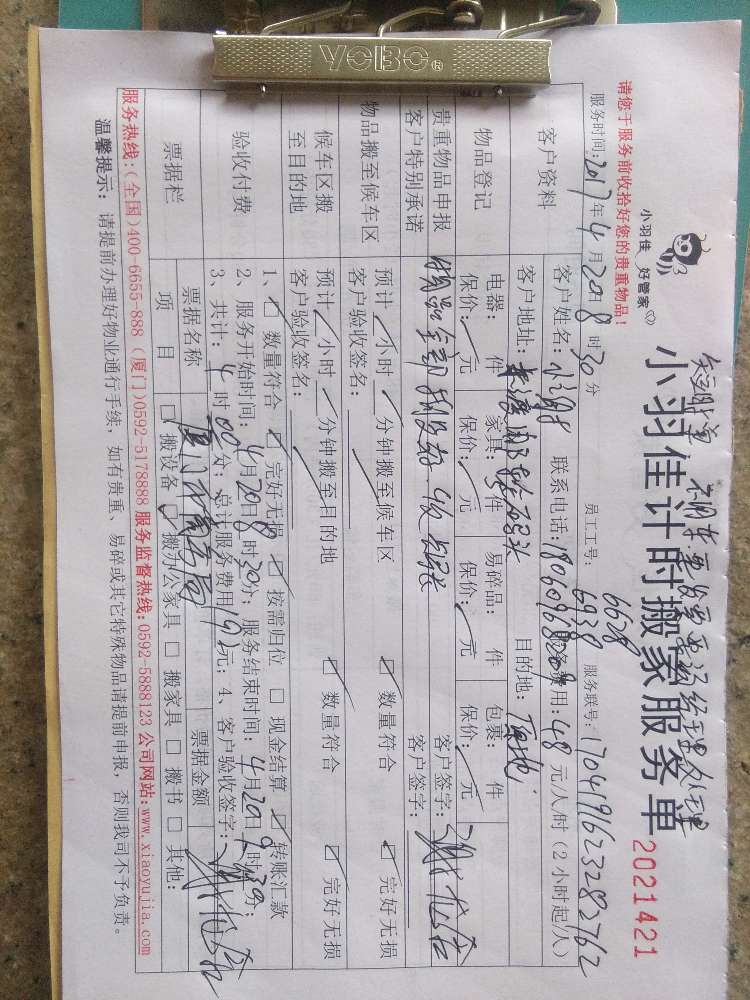 YCBC®
小羽佳 好管家
小羽佳计时搬家服务单
2021421
请您于服务前收拾好您的贵重物品！
服务时间：2017年4月20日8时30分 员工工号：6628 6938 服务联号：1704191623282762
客户资料
客户姓名：小谢 联系电话：18060968209 费用：48元/人/时（2小时起/人）
客户地址： 目的地：
物品登记
电器： 件 家具： 件 易碎品： 件 包裹： 件 客户签字：
保价： 元 保价： 元 保价： 元 保价： 元 客户签字：
贵重物品申报
客户特别承诺
物品搬至候车区
预计 小时 分钟搬至候车区 ☑ 数量符合 ☑ 完好无损
客户验收签名：
候车区搬
至目的地
预计 小时 分钟搬至目的地 ☑ 数量符合 ☑ 完好无损
客户验收签名：
验收付费
1、☑ 数量符合 ☑ 完好无损 ☑ 按需归位 □ 现金结算 ☑ 转账汇款
2、服务开始时间：4月20日8时30分；服务结束时间：4月20日9时30分；
3、共计：4时00分；总计服务费用192元；4、客户验收签字：
票据栏
票据名称 票据金额
项目 □ 搬设备 ☑ 搬办公家具 □ 搬家具 □ 搬书 □ 其他：
服务热线：(全国)400-6655-888 (厦门)0592-5178888 服务监督热线：0592-5888123 公司网站：www.xiaoyujia.com
温馨提示：请提前办理好物业通行手续，如有贵重、易碎或其它特殊物品请提前申报，否则我司不予负责。